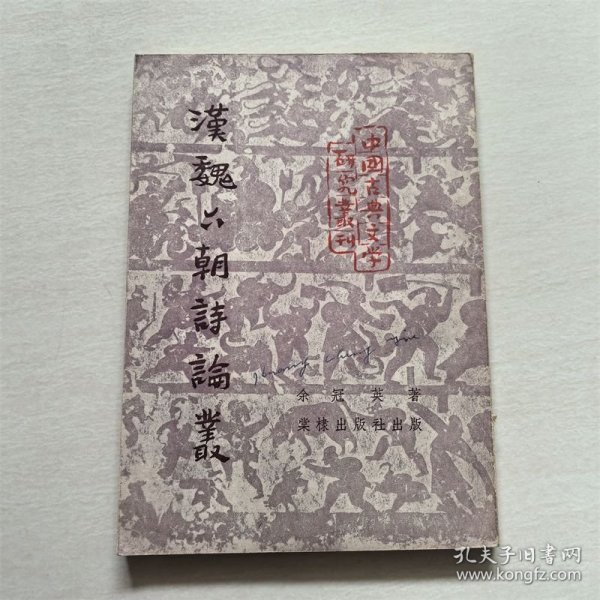 漢魏六朝詩論叢
中國古典文学
研究叢刊
余冠英著
棠棣出版社出版
孔夫子旧书网
www.kongfz.com